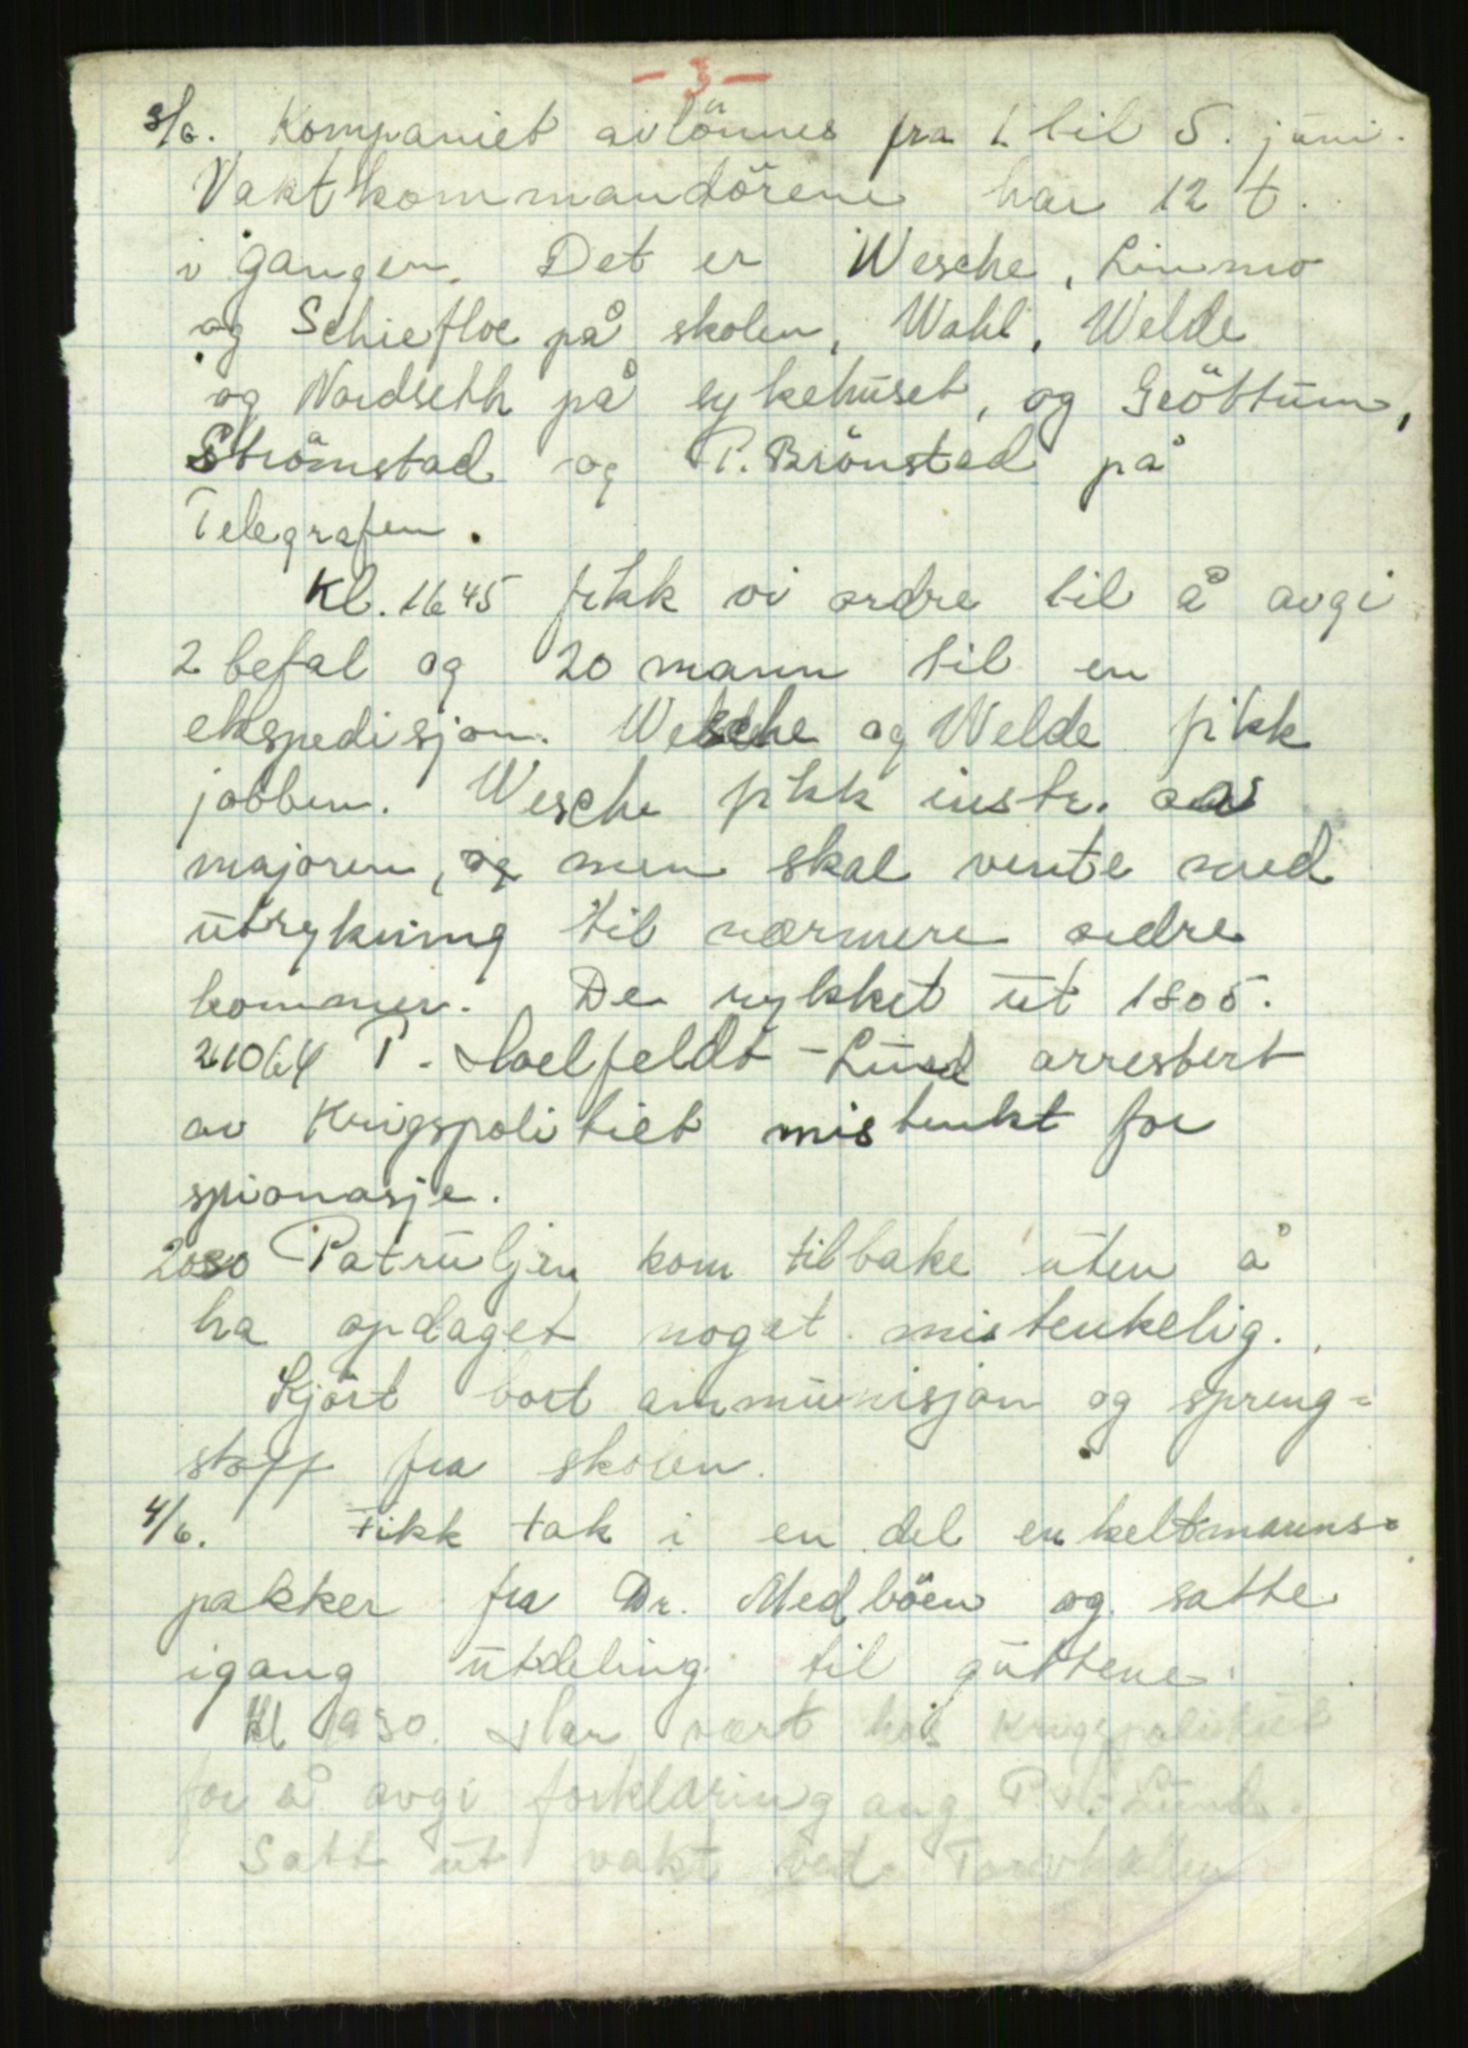 - 3 -
3/6. Kompaniet avlönnes fra 1. til 5. juni.
Vaktkommandörene har 12 t.
i gangen. Det er Wesche, Linmo
og Schiefloe på skolen, Wahl, Welde
og Nordseth på sykehuset, og Gröttum,
Strömstad og P. Brönstad på
Telegrafen.
Kl. 16 45 fikk vi ordre til å avgi
2 befal og 20 mann til en
ekspedisjon. Wesche og Welde fikk
jobben. Wesche fikk instr. av
majoren, og men skal vente med
utrykning til nærmere ordre
kommer. De rykket ut 1805.
P. Hoelfeldt-Lund arrestert
av Krigspolitiet mistenkt for
spionasje.
2030 Patruljen kom tilbake uten å
ha opdaget noget mistenkelig.
Kjört bort ammunisjon og spreng=
stoff fra skolen.
4/6. Fikk tak i en del enkeltmanns=
pakker fra Dr. Medböen og satte
igang utdeling til guttene.
Kl 930. Har vært hos Krigspolitiet
for å avgi forklaring ang. P. H.-Lund.
Satt ut vakt ved Torvhallen